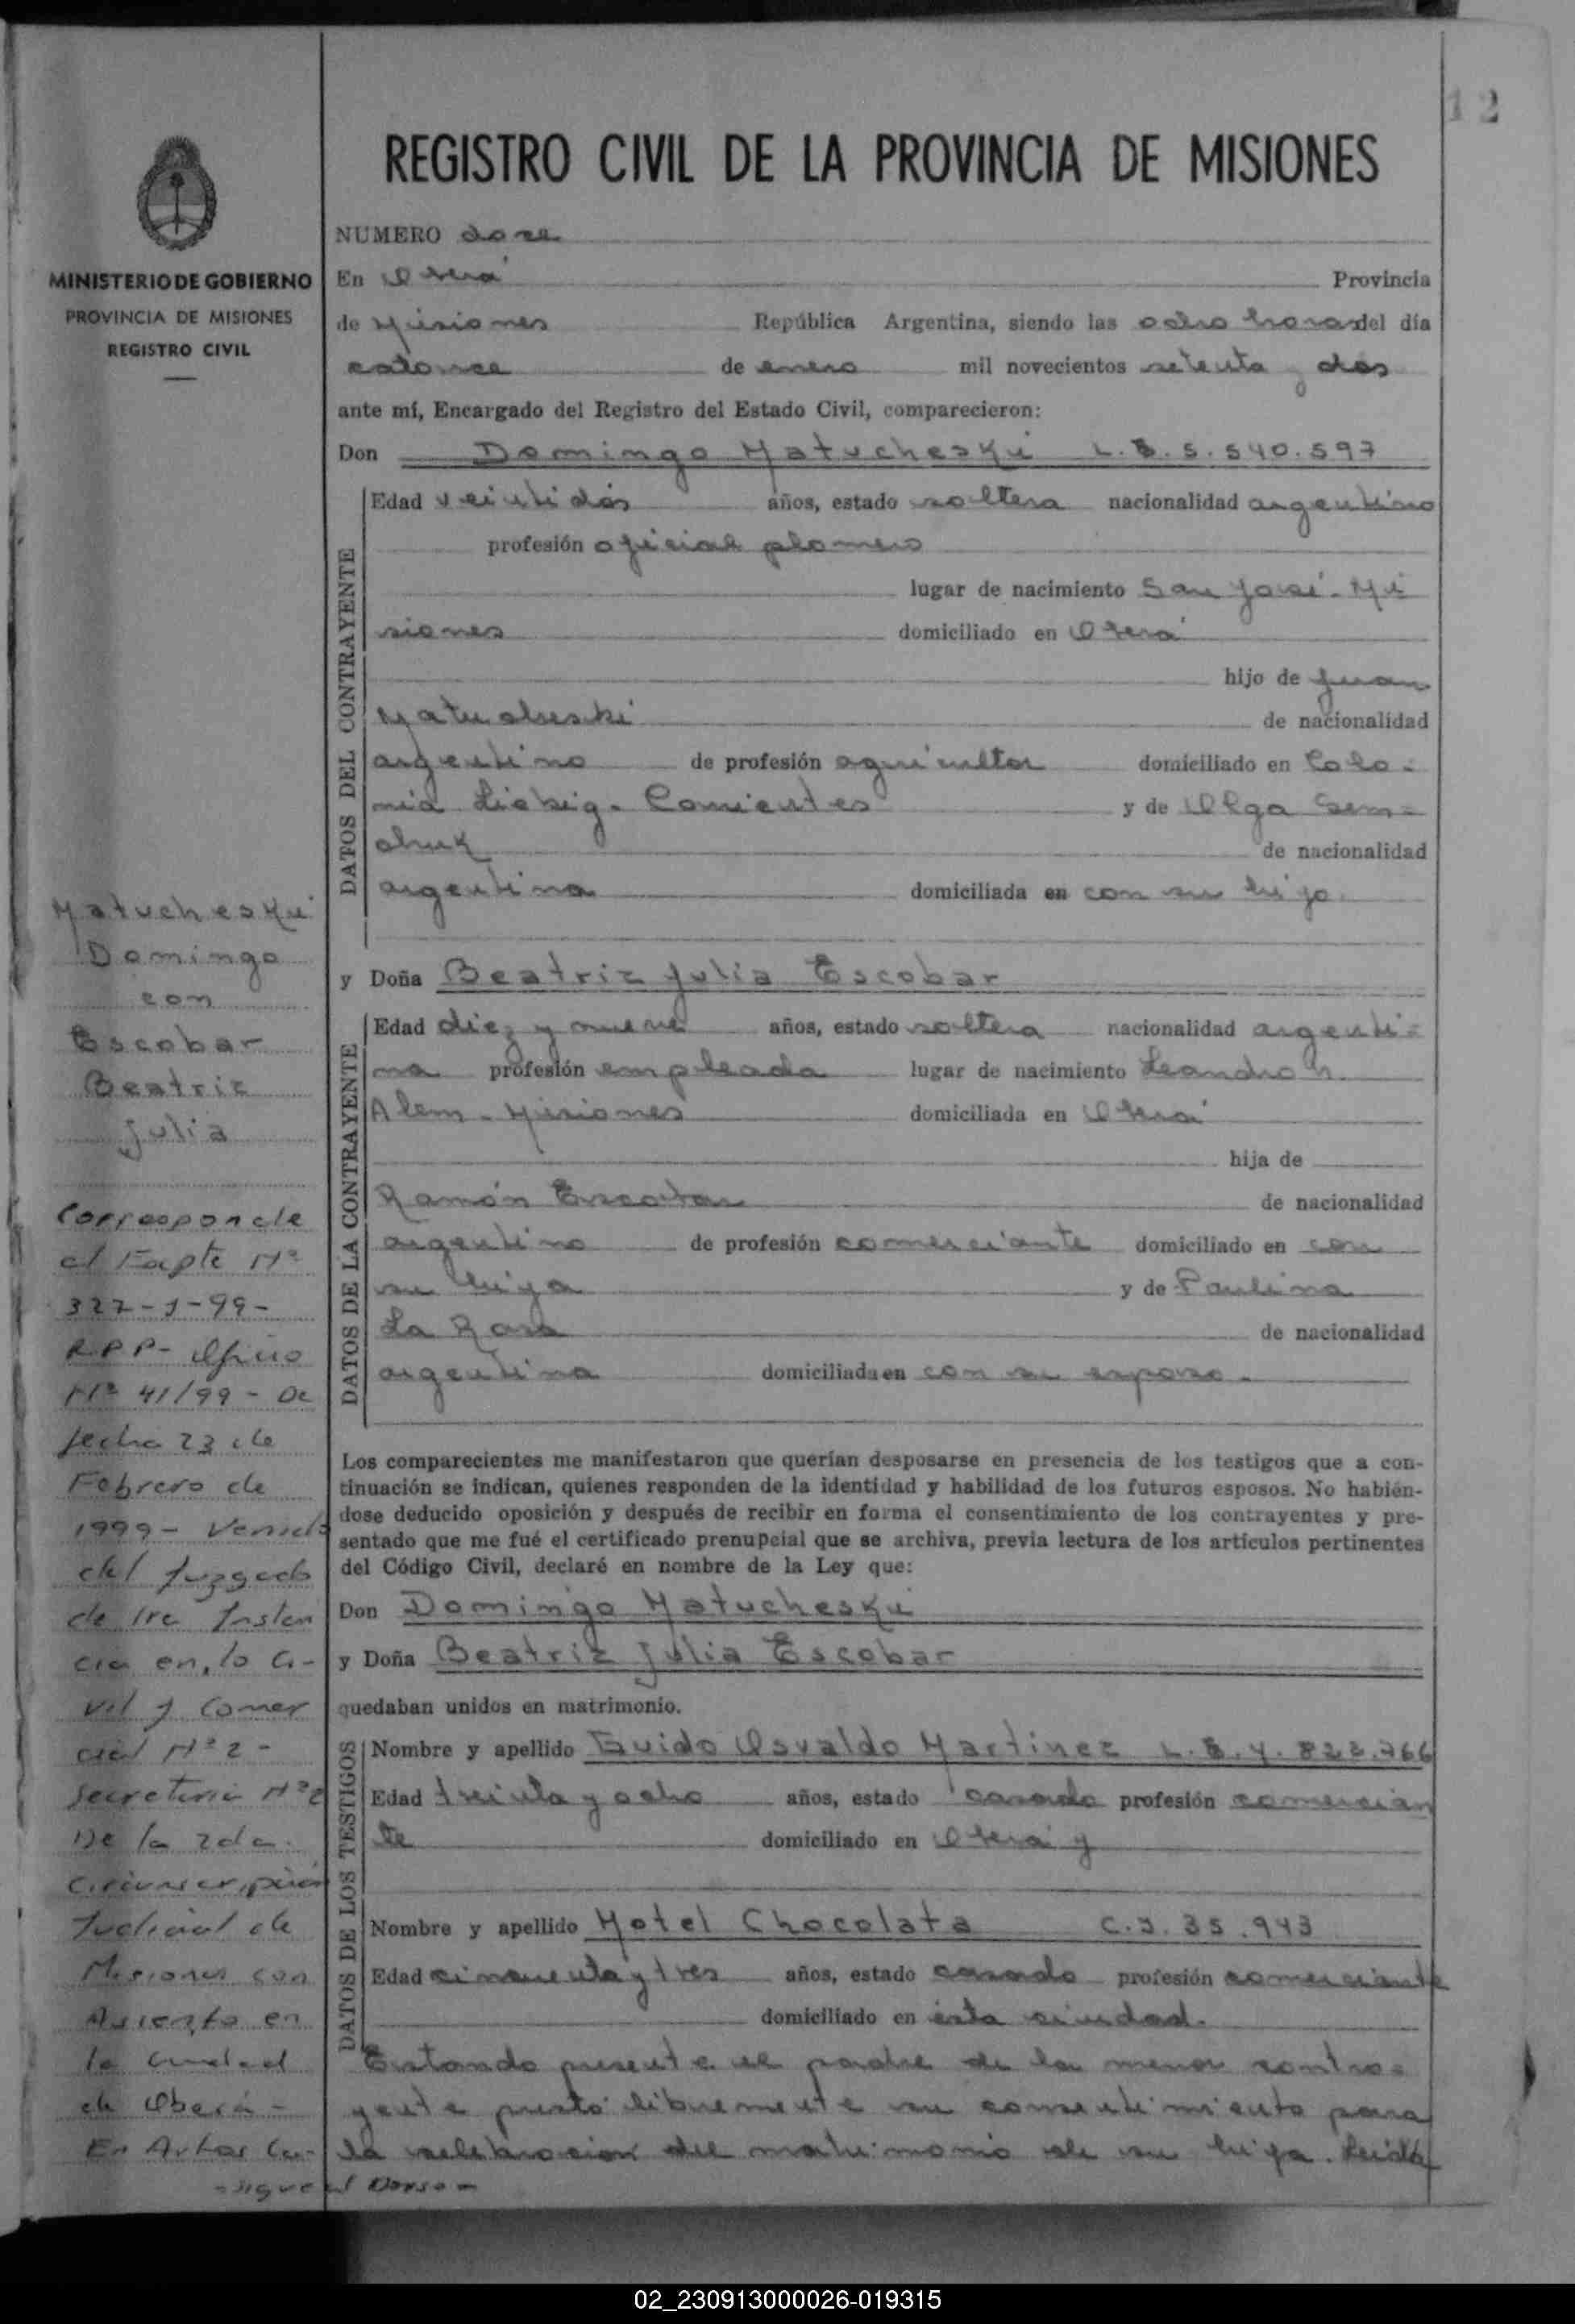 12
REGISTRO CIVIL DE LA PROVINCIA DE MISIONES
MINISTERIO DE GOBIERNO
PROVINCIA DE MISIONES
REGISTRO CIVIL
NUMERO doce
En Oberá Provincia
de Misiones República Argentina, siendo las ocho horas del día
catorce de enero mil novecientos setenta y dos
ante mí, Encargado del Registro del Estado Civil, comparecieron:
Don Domingo Matucheski L.E. 5.540.597
DATOS DEL CONTRAYENTE
Edad veintidós años, estado soltero nacionalidad argentino
profesión oficial plomero
lugar de nacimiento San José - Mi
siones domiciliado en Oberá
hijo de Juan
Matucheski de nacionalidad
argentino de profesión agricultor domiciliado en Colo-
nia Liebig - Corrientes y de Olga Sem=
chuk de nacionalidad
argentina domiciliada en con su hijo.
y Doña Beatriz Julia Escobar
DATOS DE LA CONTRAYENTE
Edad diez y nueve años, estado soltera nacionalidad argenti=
na profesión empleada lugar de nacimiento Leandro N.
Alem - Misiones domiciliada en Oberá
hija de
Ramón Escobar de nacionalidad
argentino de profesión comerciante domiciliado en con
su hija y de Paulina
La Rosa de nacionalidad
argentina domiciliada en con su esposo.
Los comparecientes me manifestaron que querían desposarse en presencia de los testigos que a con-
tinuación se indican, quienes responden de la identidad y habilidad de los futuros esposos. No habién-
dose deducido oposición y después de recibir en forma el consentimiento de los contrayentes y pre-
sentado que me fué el certificado prenupcial que se archiva, previa lectura de los artículos pertinentes
del Código Civil, declaré en nombre de la Ley que:
Don Domingo Matucheski
y Doña Beatriz Julia Escobar
quedaban unidos en matrimonio.
DATOS DE LOS TESTIGOS
Nombre y apellido Guido Osvaldo Martinez L.E. 4.823.766
Edad treinta y ocho años, estado casado profesión comercian
te domiciliado en Oberá y
Nombre y apellido Motel Chocolata C.I. 35.943
Edad cincuenta y tres años, estado casado profesión comerciante
domiciliado en ésta ciudad.
Estando presente el padre de la menor contra=
yente prestó libremente su consentimiento para
la celebracion del matrimonio de su hija. Leida
Matucheski
Domingo
con
Escobar
Beatriz
Julia
Corresponde
al Expte Nº
327-J-99-
R.P.P- Oficio
Nº 41/99 - De
fecha 23 de
Febrero de
1999 - Venido
del Juzgado
de 1ra Instan
cia en lo Ci-
vil y Comer
cial Nº 2 -
Secretaria Nº 2
De la 2da.
Circunscripción
Judicial de
Misiones con
Asiento en
la ciudad
de Oberá -
En Autos Ca-
- sigue al Dorso -
02_230913000026-019315